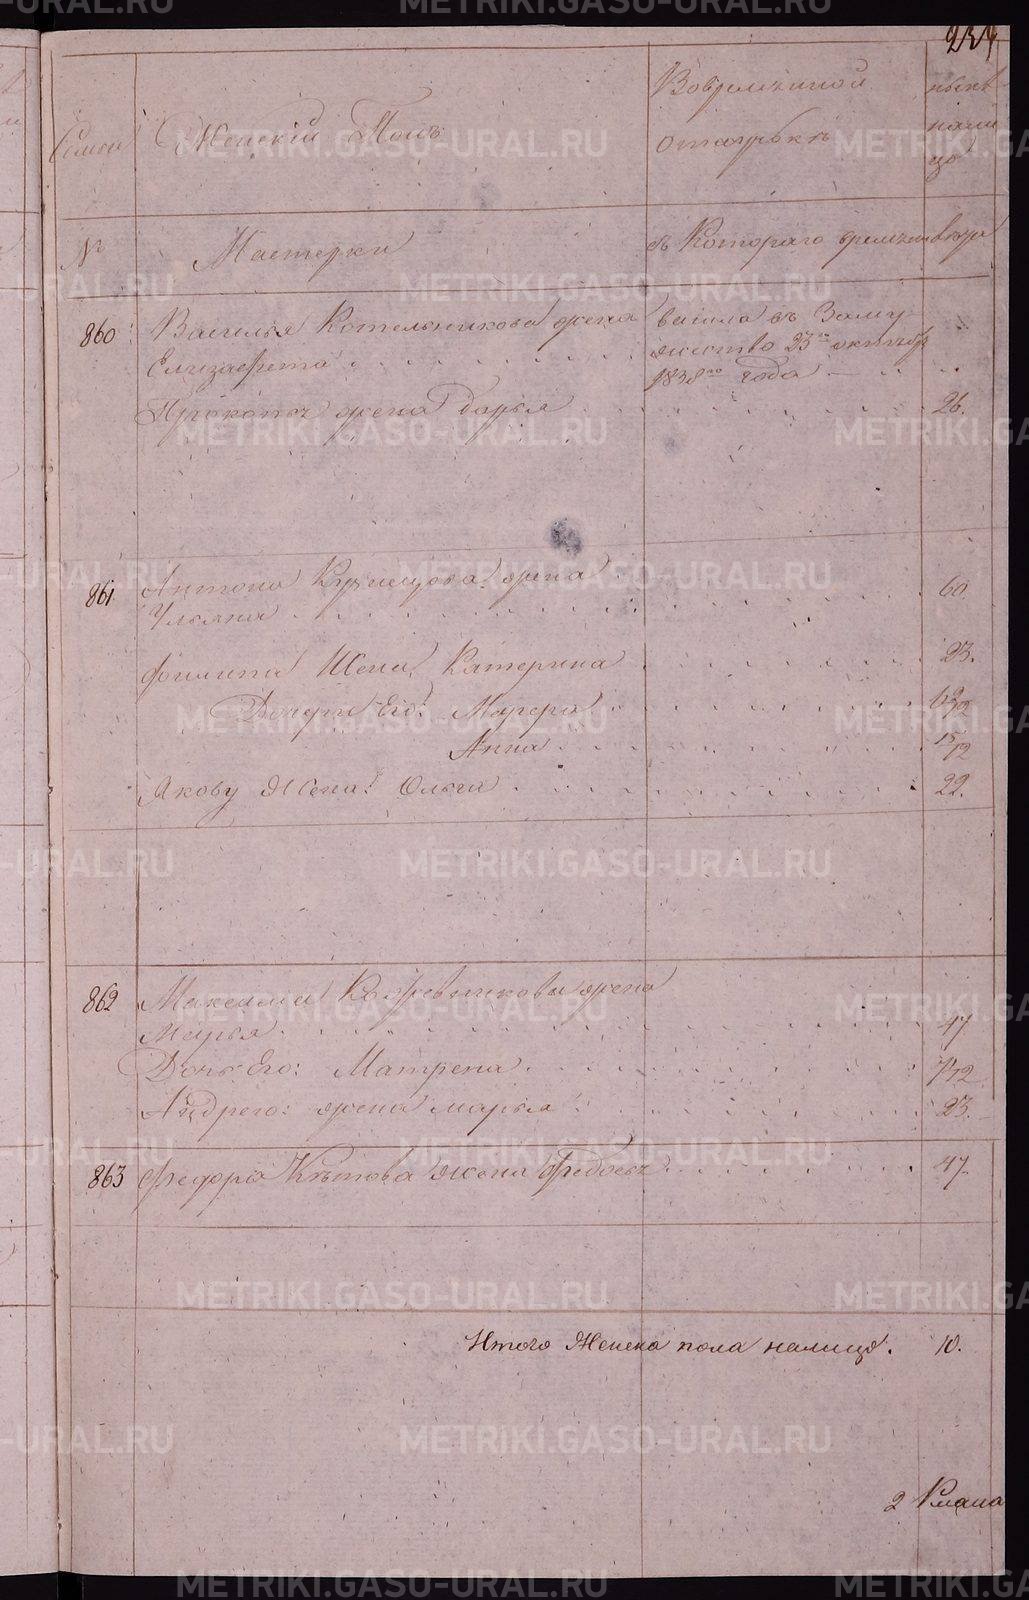 234
Семьи
Женский Полъ
Вовременной
отлучкѣ
нынѣ
нали
цо
№
Мастерки
съ Котораго времени
860
Василья Котельникова жена
Елизавета
вышла въ Заму
жество 23го октября
1838го года
Прокопья жена Дарья 26.
861
Антона Кузнецова жена
Ульяна 60
Филипа Жена Катерина 23.
Дочери Его: Марфа
Анна
Якову Жена: Ольга 22.
862
Максима Кожевникова жена
Марья 47
Дочь Его: Матрена 7/12
Андрею: жена марья 23.
863
Федора Китова Жена Федосья 47.
Итого Женска пола налицо. 10.
2
METRIKI.GASO-URAL.RU